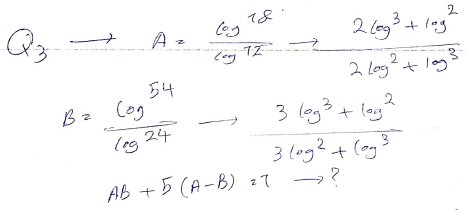 Q3 → A = log 18 / log 12 → 2 log 3 + log 2 / 2 log 2 + log 3
B = log 54 / log 24 → 3 log 3 + log 2 / 3 log 2 + log 3
AB + 5 (A-B) = ? → ?